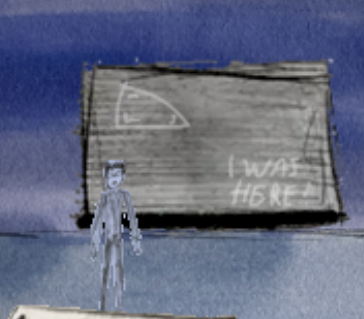 I WAS
HERE!